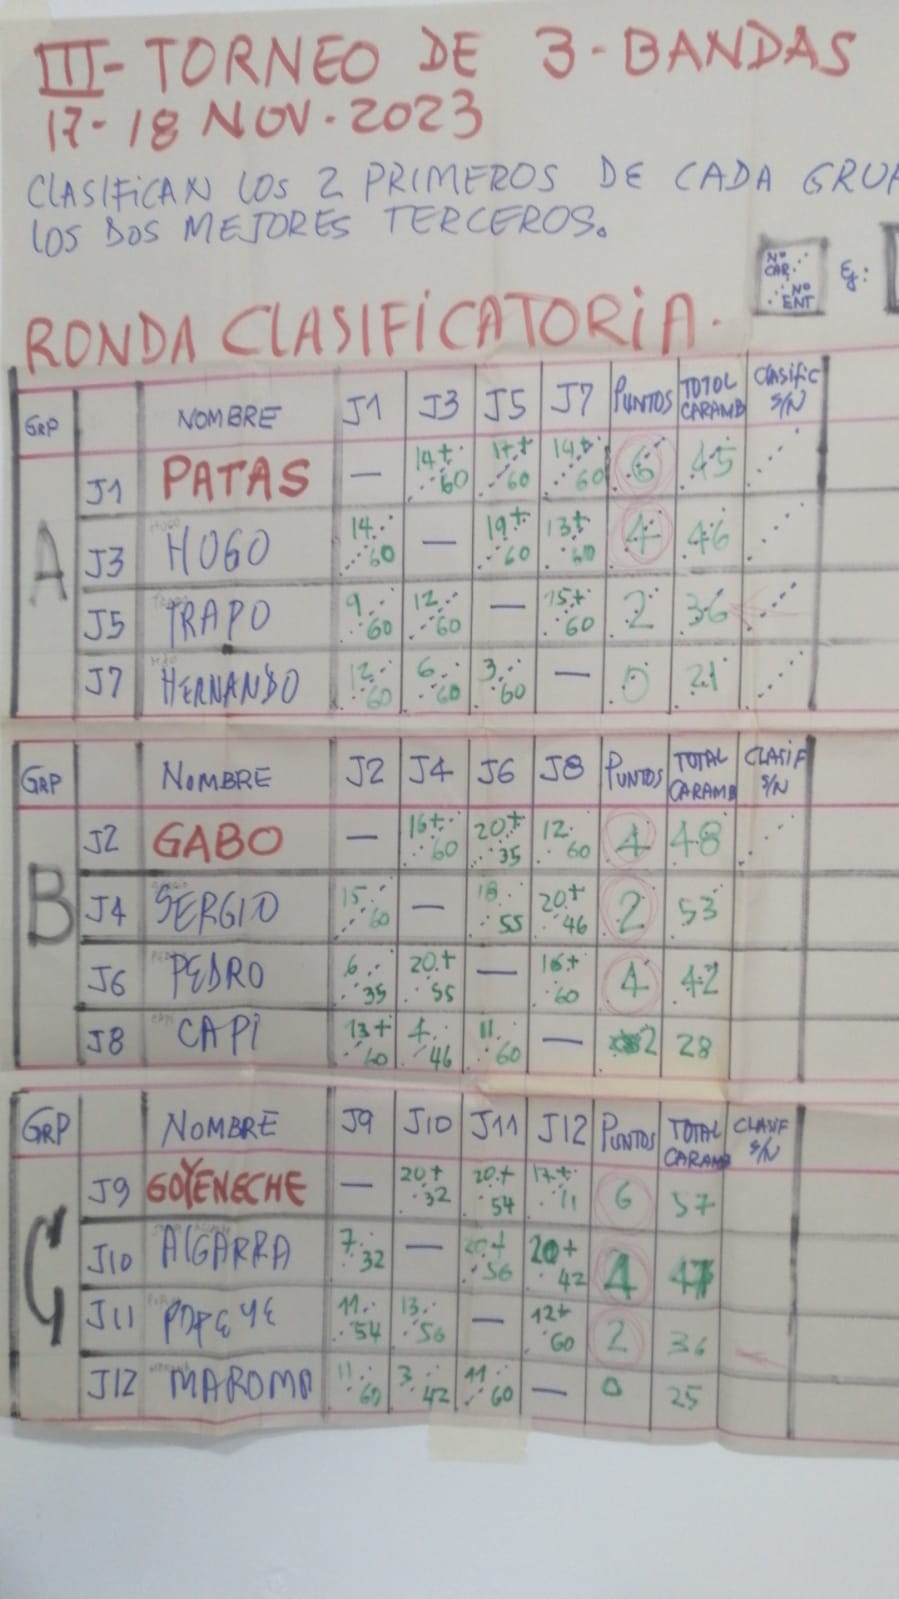 III- TORNEO DE 3-BANDAS
17-18 NOV. 2023
CLASIFICAN LOS 2 PRIMEROS DE CADA GRUP
LOS DOS MEJORES TERCEROS.
Nº CAR. Nº ENT Ej:
RONDA CLASIFICATORIA.
GRP NOMBRE J1 J3 J5 J7 PUNTOS TOTAL CARAMB Clasific S/N
A
J1 PATAS — 14+ 60 17+ 60 14+ 60 6 45
J3 HUGO 14 60 — 19+ 60 13+ 60 4 46
J5 TRAPO 9 60 12 60 — 15+ 60 2 36
J7 HERNANDO 12 60 6 60 3 60 — 0 21
GRP NOMBRE J2 J4 J6 J8 PUNTOS TOTAL CARAMB CLASIF S/N
B
J2 GABO — 16+ 60 20+ 35 12 60 4 48
J4 SERGIO 15 60 — 18 55 20+ 46 2 53
J6 PEDRO 6 35 20+ 55 — 16+ 60 4 42
J8 CAPI 13+ 60 4 46 11 60 — 2 28
GRP NOMBRE J9 J10 J11 J12 PUNTOS TOTAL CARAMB CLASIF S/N
C
J9 GOYENECHE — 20+ 32 20+ 54 17+ 11 6 57
J10 ALGARRA 7 32 — 20+ 56 20+ 42 4 47
J11 POPEYE 11 54 13 56 — 12+ 60 2 36
J12 MAROMO 11 60 3 42 11 60 — 0 25